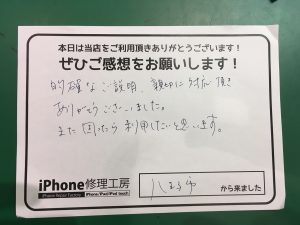 本日は当店をご利用頂きありがとうございます！
ぜひご感想をお願いします！
的確なご説明、親切に対応頂き
ありがとうございました。
また困ったら利用したいと思います。
iPhone修理工房
iPhone Repair Factory
iPhone/iPad/iPod touch
八王子市
から来ました